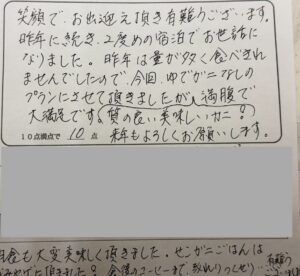 笑顔で、お出迎え頂き有難うございます。
昨年に続き、2度めの宿泊でお世話に
なりました。昨年は量が多く食べきれ
ませんでしたので、今回、ゆでガニなしの
プランにさせて頂きましたが、満腹で
大満足です。質の良い美味しいカニ?
10点満点で 10 点 来年もよろしくお願いします。
も大変美味しく頂きました。せこがにごはんは
頂きました? 食後のコーヒーまで、
有難う